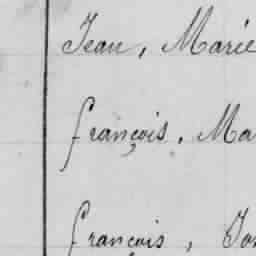 Jean, Marie
françois, Ma
françois, Jos